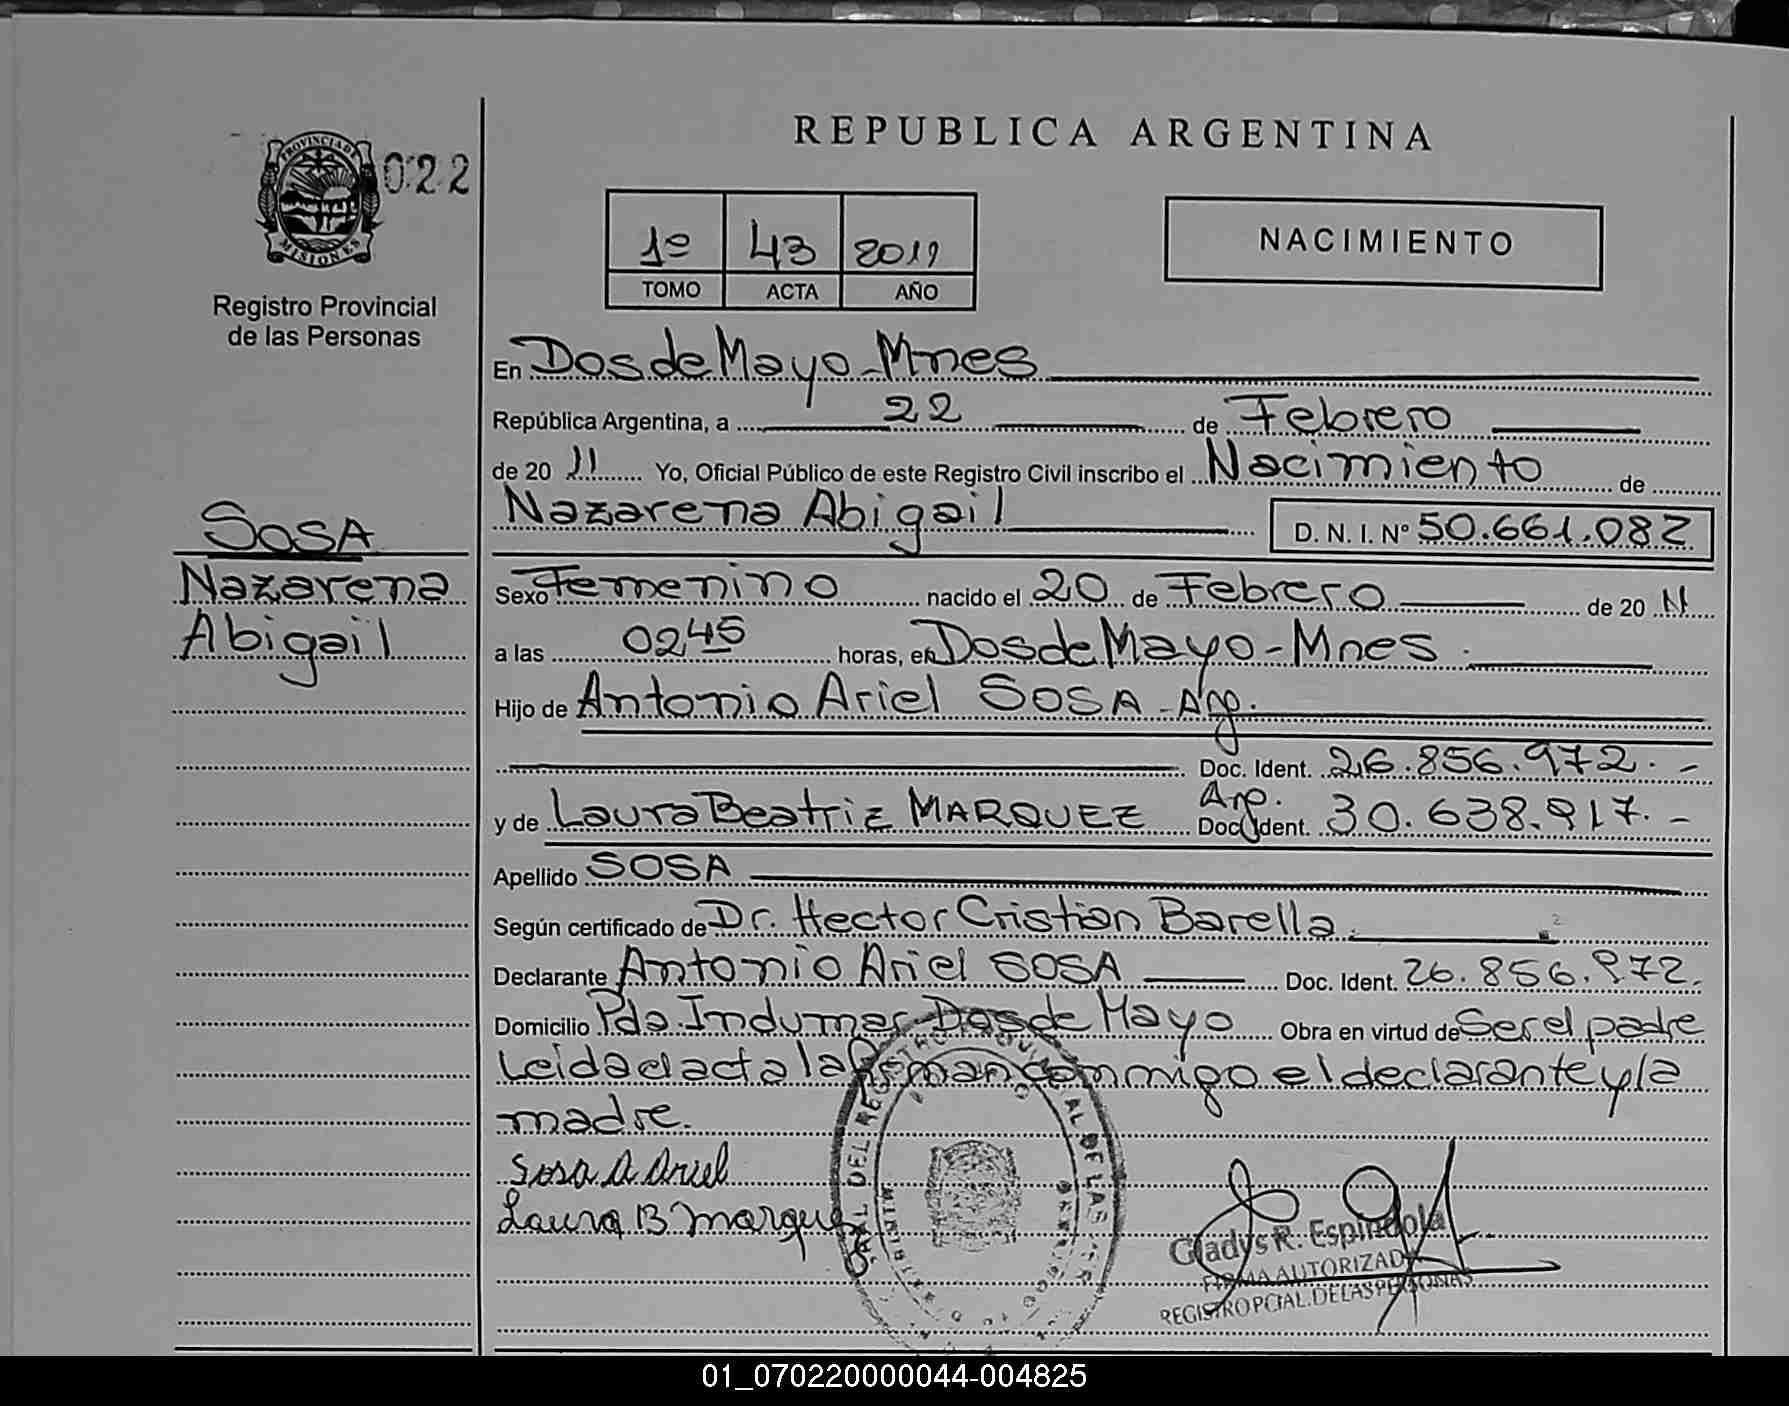 REPUBLICA ARGENTINA
PROVINCIA DE
MISIONES
022
Registro Provincial
de las Personas
1º 43 2011
TOMO ACTA AÑO
NACIMIENTO
En Dos de Mayo - Mnes
República Argentina, a 22 de Febrero
de 20 11 Yo, Oficial Público de este Registro Civil inscribo el Nacimiento de
Nazarena Abigail D. N. I. Nº 50.661.082
SOSA
Nazarena
Abigail
Sexo Femenino nacido el 20 de Febrero de 20 11
a las 02 45 horas, en Dos de Mayo - Mnes.
Hijo de Antonio Ariel SOSA - Arg.
Doc. Ident. 26.856.972.-
Arg.
y de Laura Beatriz MARQUEZ Doc. Ident. 30.638.917.-
Apellido SOSA
Según certificado de Dr. Hector Cristian Barella.
Declarante Antonio Ariel SOSA Doc. Ident. 26.856.972.
Domicilio Pda. Indumar Dos de Mayo Obra en virtud de Ser el padre
Leida el acta la firman conmigo el declarante y la
madre.
Sosa A Ariel
Laura B Marquez
Gladys R. Espindola
FIRMA AUTORIZADA
REGISTRO PCIAL. DE LAS PERSONAS
01_070220000044-004825